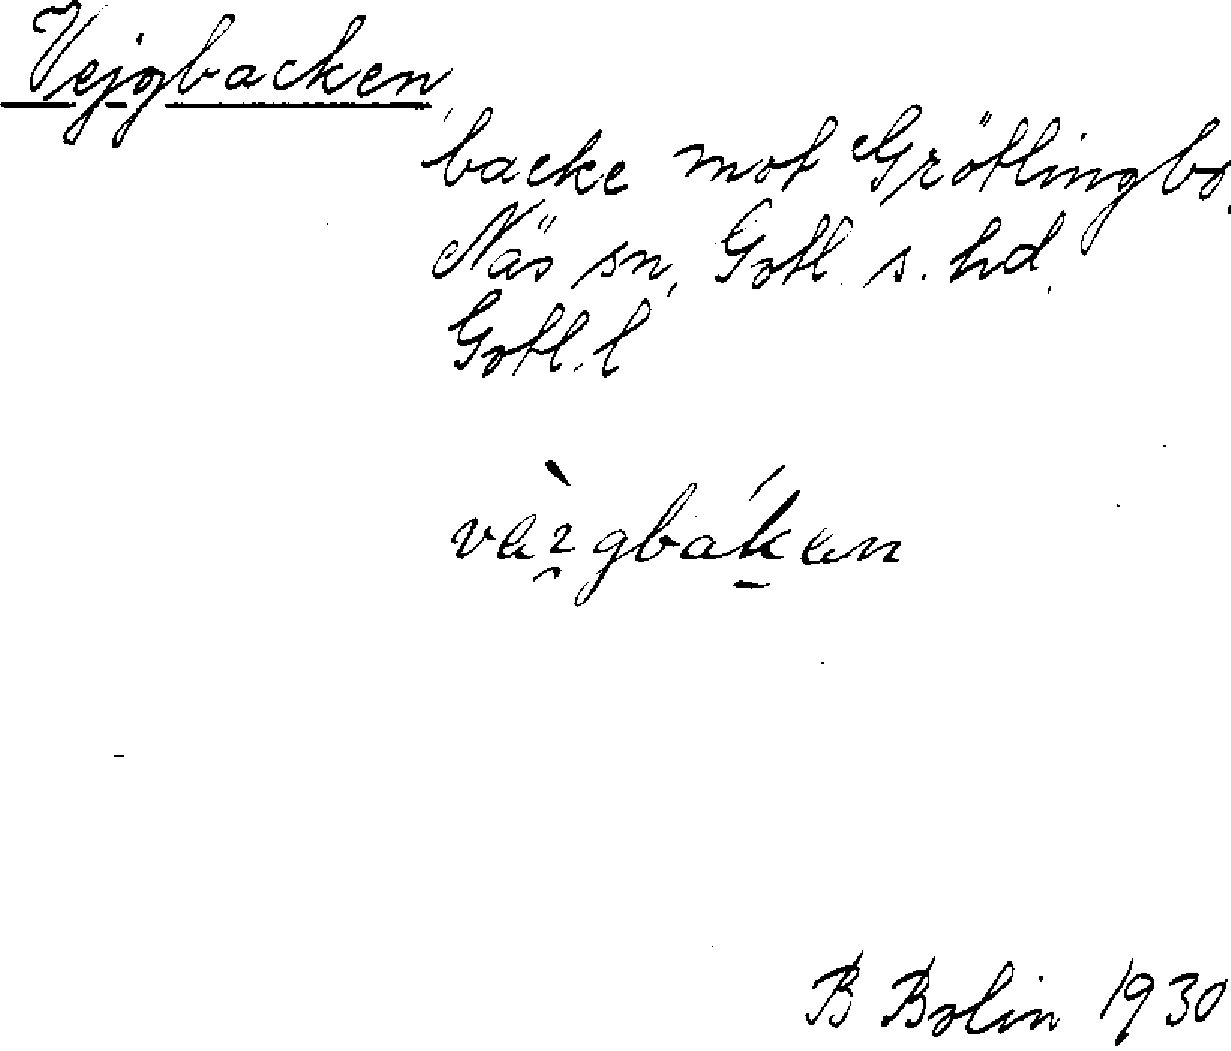 Vejgbacken,
backe mot Grötlingbo.
Näs sn, Gotl. s. hd.
Gotl. l
B Bolin 1930